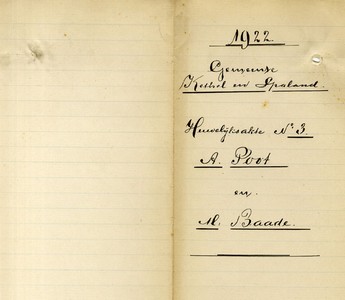 1922.
Gemeente
Kethel en Spaland.
Huwelijksakte No. 3.
A. Poot
en.
M. Baade.